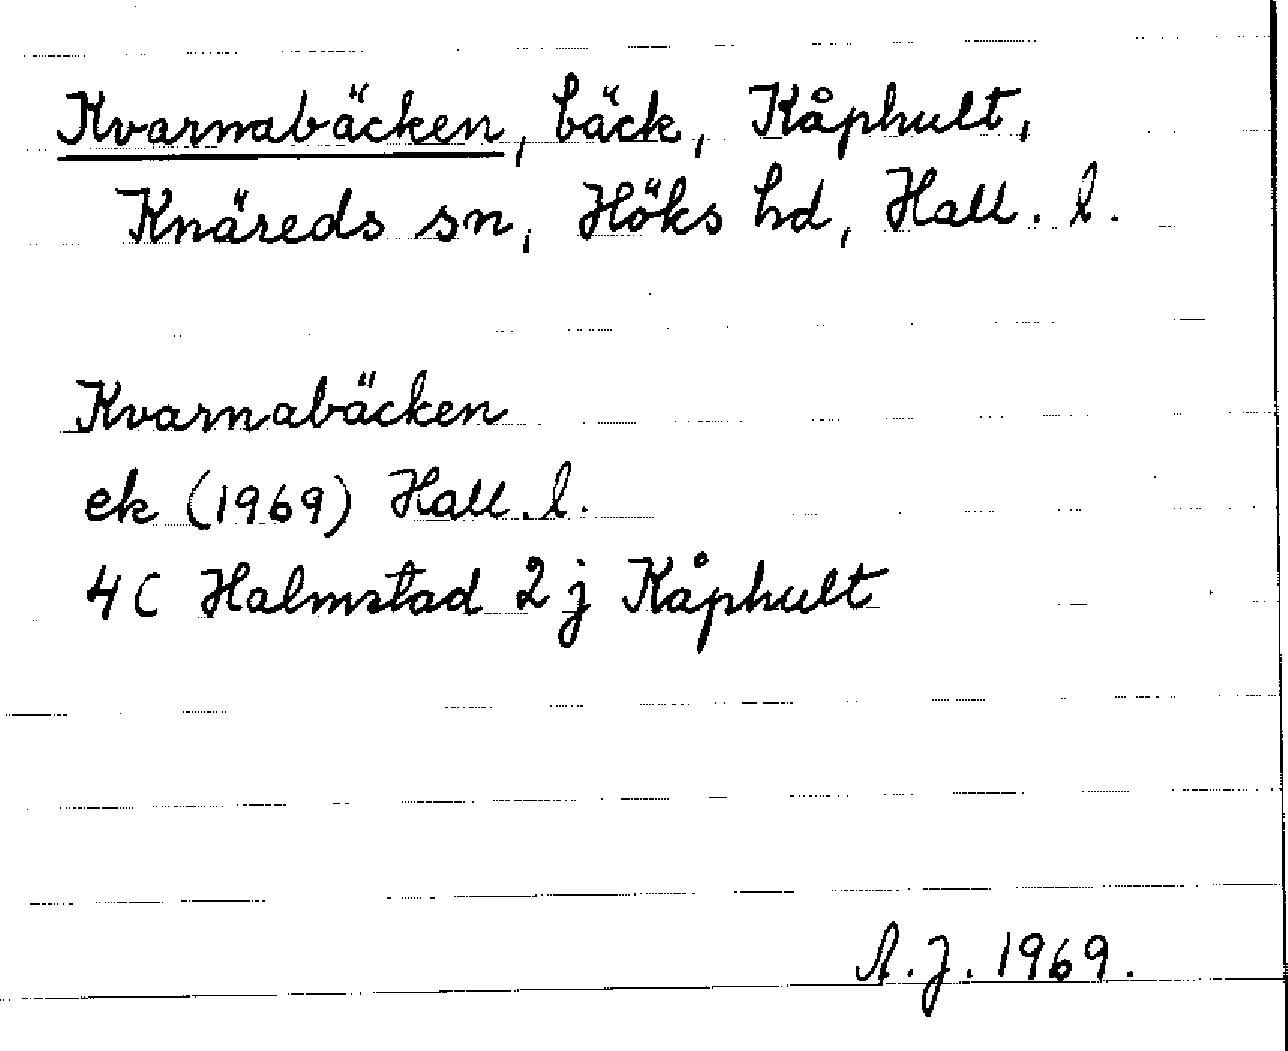 Kvarnabäcken, bäck, Kåphult,
Knäreds sn, Höks hd, Hall. l.
Kvarnabäcken
ek (1969) Hall. l.
4C Halmstad 2j Kåphult
A.J. 1969.